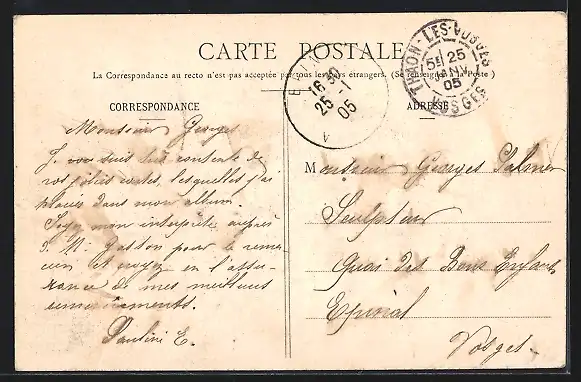 CARTE POSTALE
La Correspondance au recto n'est pas acceptée par tous les pays étrangers. (Se renseigner à la Poste)
CORRESPONDANCE
ADRESSE
THAON-LES-VOSGES
5E 25
JANV
05
VOSGES
EPINAL
16 30
25 -1
05
Monsieur Georges
Je vous suis très contente de
vos jolies cartes, lesquelles j'ai
placées dans mon album.
Soyez mon interprète auprès
d. M. Gaston pour le remer-
cier et croyez en l'assu-
rance de mes meilleurs
remerciements.
Pauline E.
Monsieur Georges
Sculpteur
Quai des Bons Enfants
Epinal
Vosges.